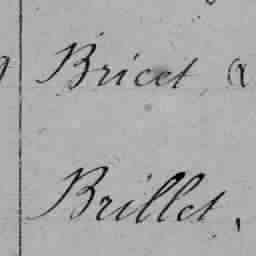 Bricet &
Brillet.